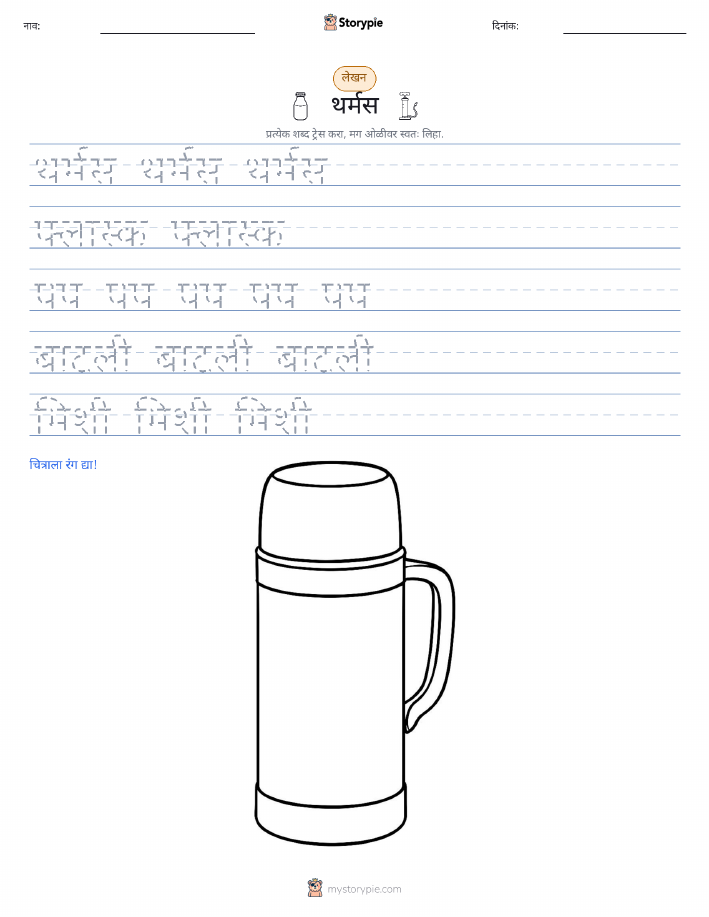 नाव:
Storypie
दिनांक:
लेखन
थर्मस
प्रत्येक शब्द ट्रेस करा, मग ओळीवर स्वतः लिहा.
थर्मस थर्मस थर्मस
फ्लास्क फ्लास्क
पप पप पप पप पप
बाटली बाटली बाटली
मिशी मिशी मिशी
चित्राला रंग द्या!
mystorypie.com